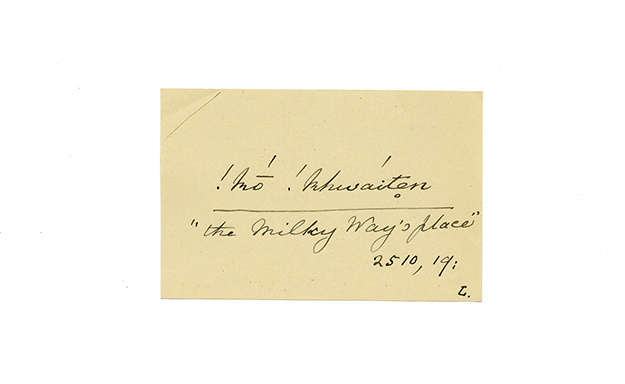 !kṓ !khwáitẹn
"the Milky Way's place"
2510, 19:
L.